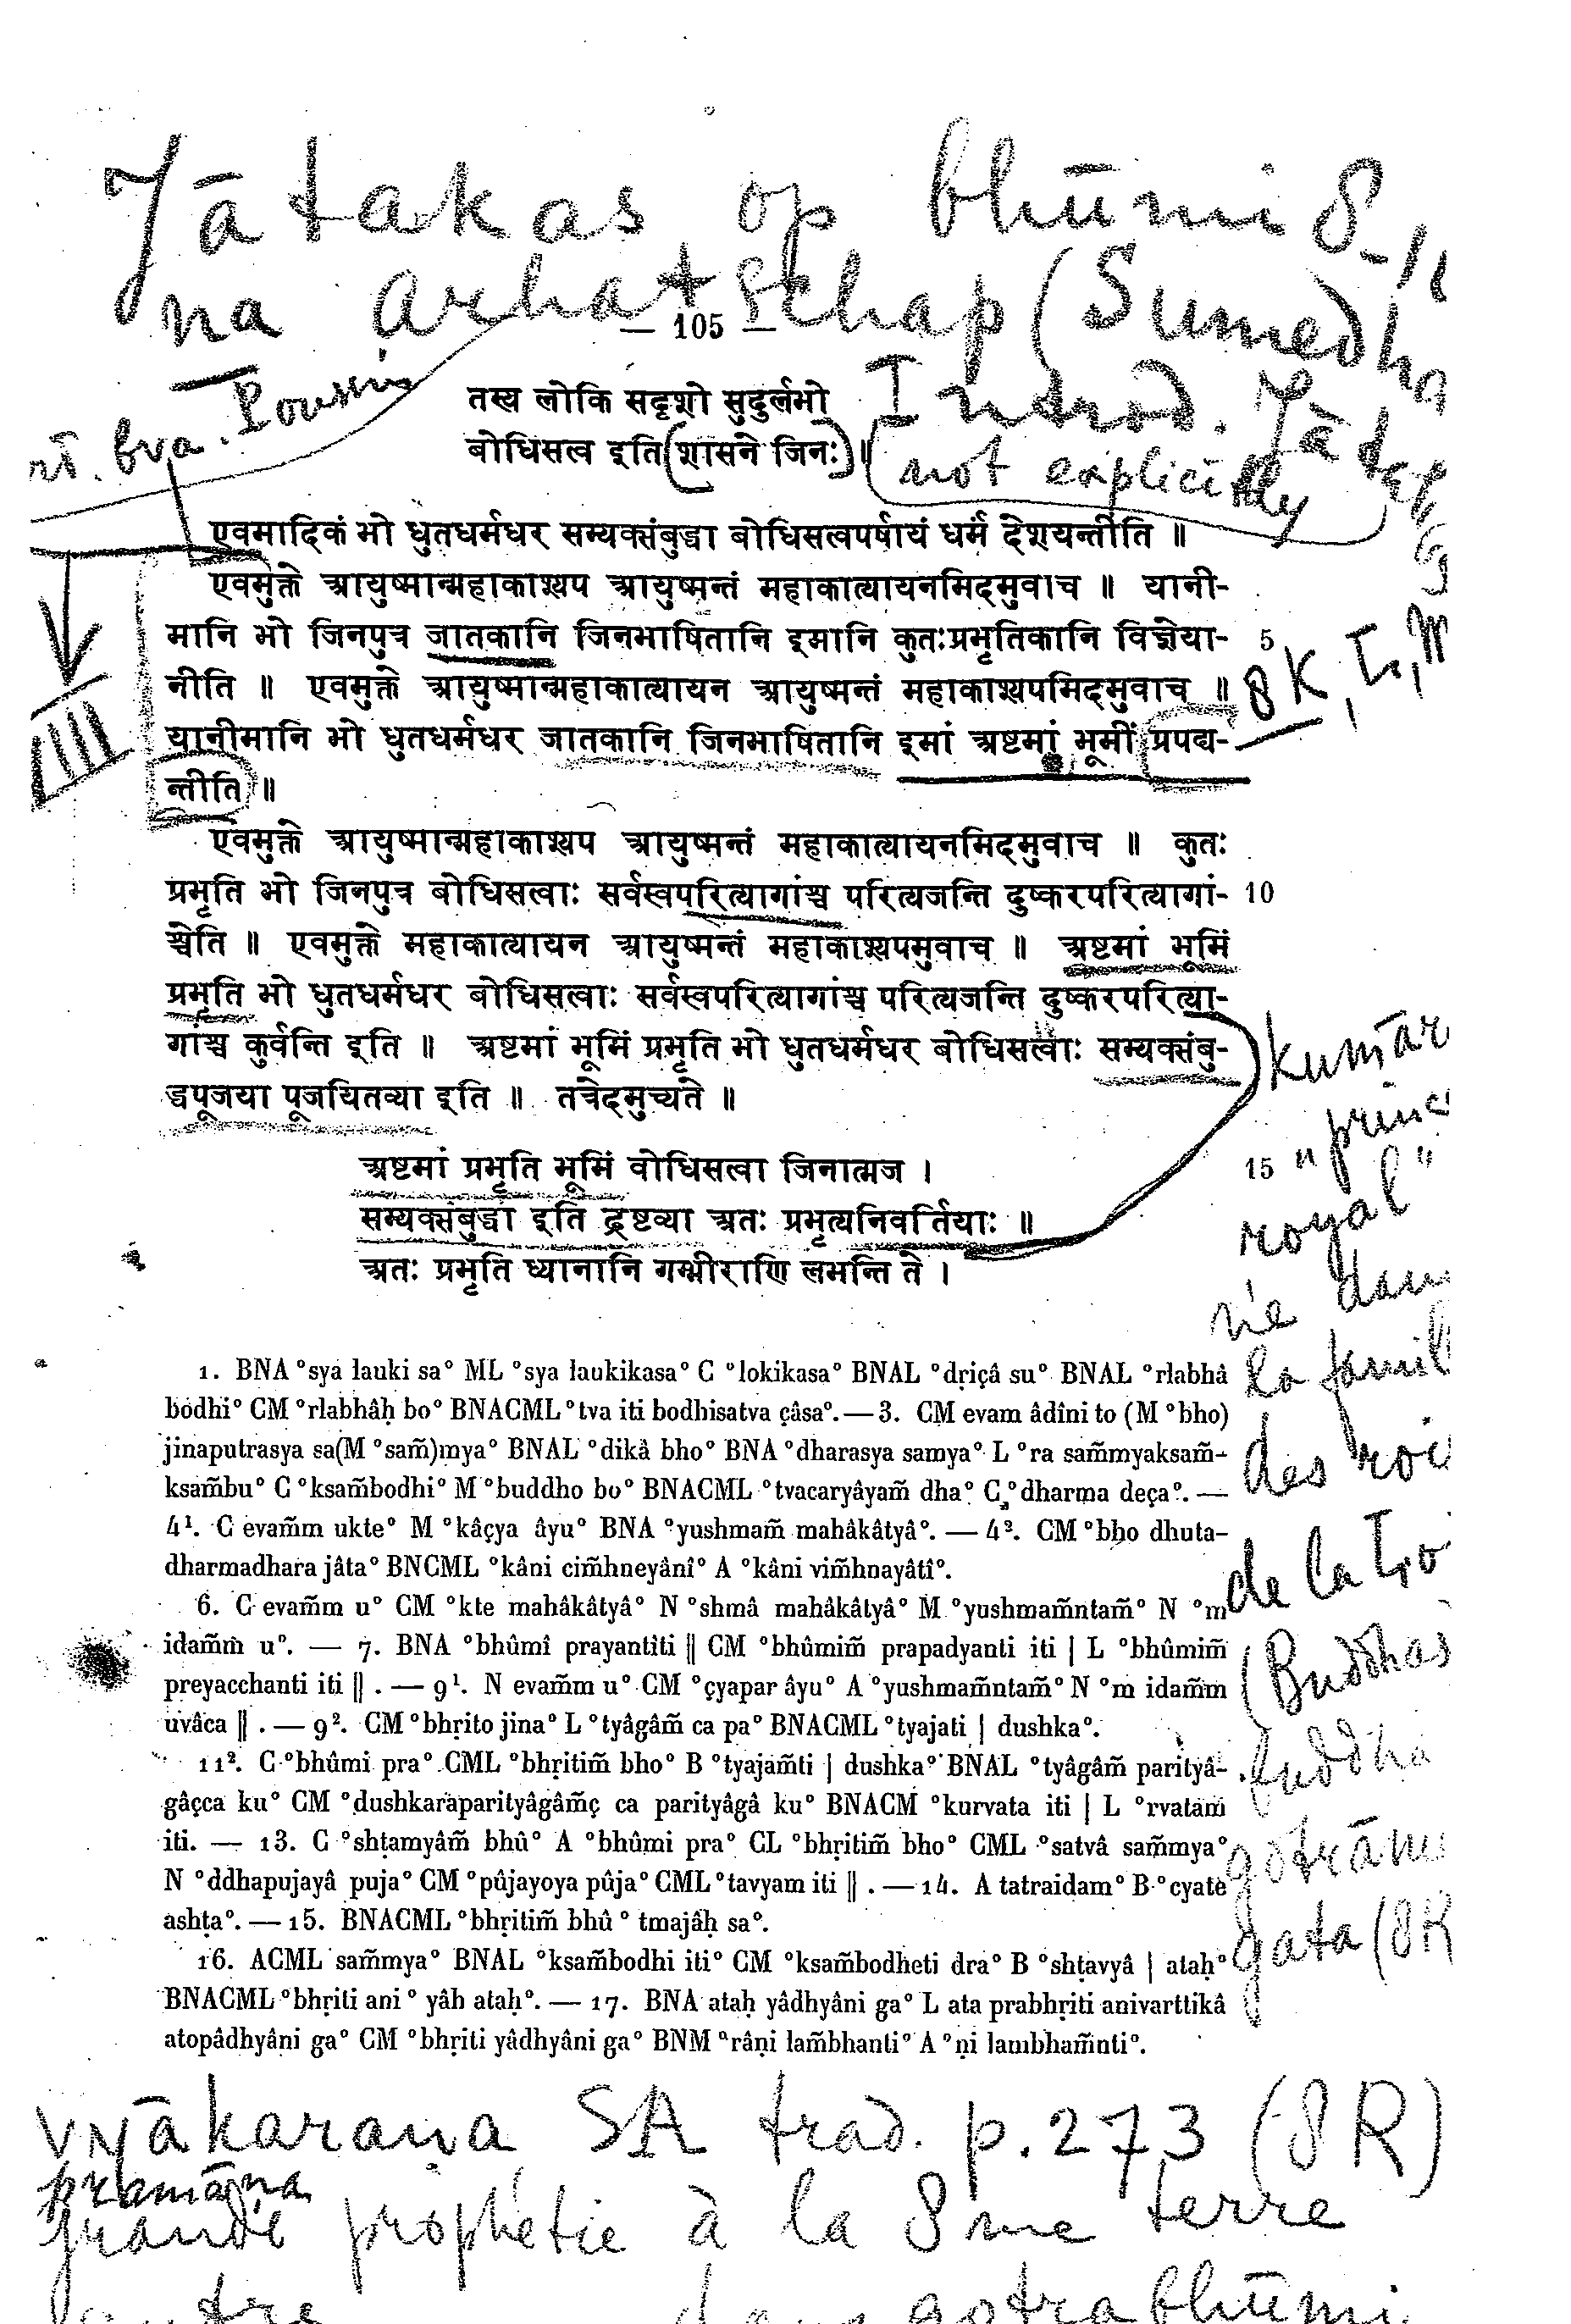 Jātakas op bhūmi 8
na arhatschap (Sumedha
— 105 —
Introd. Jātaka
not explicitly
तस्य लोकि सदृशो सुदुर्लभो
बोधिसत्व इति शासने जिनः ॥
एवमादिकं भो धुतधर्मधर सम्यक्संबुद्धा बोधिसत्वपर्षायं धर्मं देशयन्तीति ॥
एवमुक्ते आयुष्मान्महाकाश्यप आयुष्मन्तं महाकात्यायनमिदमुवाच ॥ यानी-
मानि भो जिनपुत्र जातकानि जिनभाषितानि इमानि कुतःप्रभृतिकानि विज्ञेया- 5
नीति ॥ एवमुक्ते आयुष्मान्महाकात्यायन आयुष्मन्तं महाकाश्यपमिदमुवाच ॥
यानीमानि भो धुतधर्मधर जातकानि जिनभाषितानि इमां अष्टमां भूमीं प्रपद्य-
न्तीति ॥
एवमुक्ते आयुष्मान्महाकाश्यप आयुष्मन्तं महाकात्यायनमिदमुवाच ॥ कुतः
प्रभृति भो जिनपुत्र बोधिसत्वाः सर्वस्वपरित्यागांश्च परित्यजन्ति दुष्करपरित्यागां- 10
श्चेति ॥ एवमुक्ते महाकात्यायन आयुष्मन्तं महाकाश्यपमुवाच ॥ अष्टमां भूमिं
प्रभृति भो धुतधर्मधर बोधिसत्वाः सर्वस्वपरित्यागांश्च परित्यजन्ति दुष्करपरित्या-
गांश्च कुर्वन्ति इति ॥ अष्टमां भूमिं प्रभृति भो धुतधर्मधर बोधिसत्वाः सम्यक्संबु-
द्धपूजया पूजयितव्या इति ॥ तत्रेदमुच्यते ॥
अष्टमां प्रभृति भूमिं बोधिसत्वा जिनात्मज । 15
सम्यक्संबुद्धा इति द्रष्टव्या अतः प्रभृत्यनिवर्तियाः ॥
अतः प्रभृति ध्यानानि गम्भीराणि लभन्ति ते ।
kumār
"princ
royal"
né dans
la famil
des rois
de la
(Buddhas
buddha
gotrānu
gata (8R
1. BNA °sya lauki sa° ML °sya laukikasa° C °lokikasa° BNAL °dṛiçâ su° BNAL °rlabhâ
bodhi° CM °rlabhâḥ bo° BNACML °tva iti bodhisatva çâsa°. — 3. CM evam âdîni to (M °bho)
jinaputrasya sa(M °sam̃)mya° BNAL °dikà bho° BNA °dharasya samya° L °ra sam̃myaksam̃-
ksam̃bu° C °ksam̃bodhi° M °buddho bo° BNACML °tvacaryâyam̃ dha° C °dharma deça°. —
4¹. C evam̃m ukte° M °kâçya âyu° BNA °yushmam̃ mahâkâtyâ°. — 4². CM °bho dhuta-
dharmadhara jâta° BNCML °kâni cim̃hneyânî° A °kâni vim̃hnayâtî°.
6. C evam̃m u° CM °kte mahâkâtyâ° N °shmâ mahâkâtyâ° M °yushmam̃ntam̃° N °m
idam̃m u°. — 7. BNA °bhûmî prayantîti ‖ CM °bhûmim̃ prapadyanti iti | L °bhûmim̃
preyacchanti iti ‖ . — 9¹. N evam̃m u° CM °çyapar âyu° A °yushmam̃ntam̃° N °m idam̃m
uvâca ‖ . — 9². CM °bhṛito jina° L °tyâgâm̃ ca pa° BNACML °tyajati | dushka°.
11². C °bhûmi pra° CML °bhṛitim̃ bho° B °tyajam̃ti | dushka° BNAL °tyâgâm̃ parityâ-
gâçca ku° CM °dushkaraparityâgâm̃ç ca parityâgâ ku° BNACM °kurvata iti | L °rvatam
iti. — 13. C °shṭamyâm̃ bhû° A °bhûmi pra° CL °bhṛitim̃ bho° CML °satvâ sam̃mya°
N °ddhapujayâ puja° CM °pûjayoya pûja° CML °tavyam iti ‖ . — 14. A tatraidam° B °cyate
ashṭa°. — 15. BNACML °bhṛitim̃ bhû° tmajâḥ sa°.
16. ACML sam̃mya° BNAL °ksam̃bodhi iti° CM °ksam̃bodheti dra° B °shṭavyâ | ataḥ°
BNACML °bhṛiti ani° yâh ataḥ°. — 17. BNA ataḥ yâdhyâni ga° L ata prabhṛiti anivarttikâ
atopâdhyâni ga° CM °bhṛiti yâdhyâni ga° BNM °râṇi lam̃bhanti° A °ṇi lambham̃nti°.
vyākaraṇa SA trad. p. 273 (8R)
pramāṇa
grande prophétie à la 8me terre
gotrabhūmi